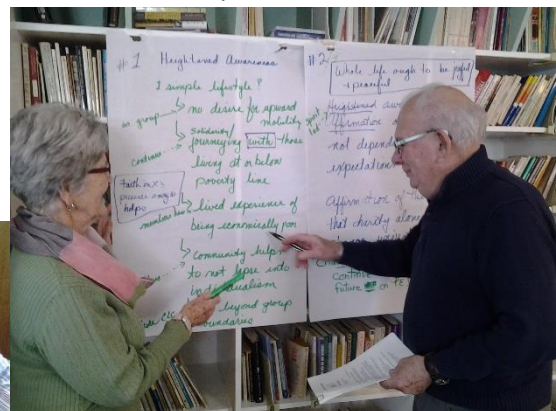 #1 Heightened Awareness
I simple lifestyle?
in group
no desire for upward
mobility
solidarity/
continue
journeying with those
living at or below
poverty line
Faith
presence
helps
members have
lived experience of
being economically poor
community helps
to not lapse into
individualism
beyond group
boundaries
CLC
#2
Whole life ought to be
peaceful
Heightened
Affirmation
not depend
expectation
Affirmation of
that charity alone
continue
future on